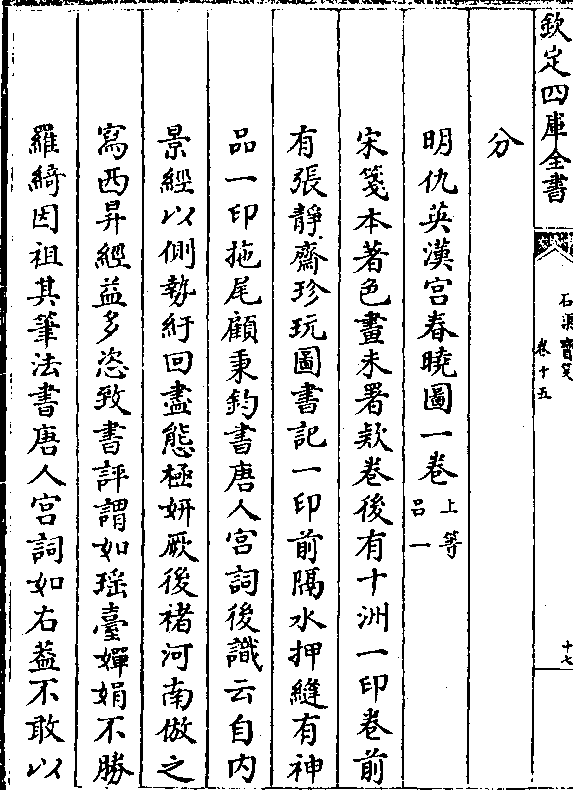 欽定四庫全書
石渠寶笈
卷十五
十七
分
明仇英漢宮春曉圖一卷 上等 呂一
宋箋本著色畫未署款卷後有十洲一印卷前
有張靜齋珍玩圖書記一印前隔水押縫有神
品一印拖尾顧秉鈞書唐人宮詞後識云自内
景經以側勢紆回盡態極妍厥後褚河南倣之
寫西昇經益多恣致書評謂如瑤臺嬋娟不勝
羅綺因祖其筆法書唐人宮詞如右葢不敢以